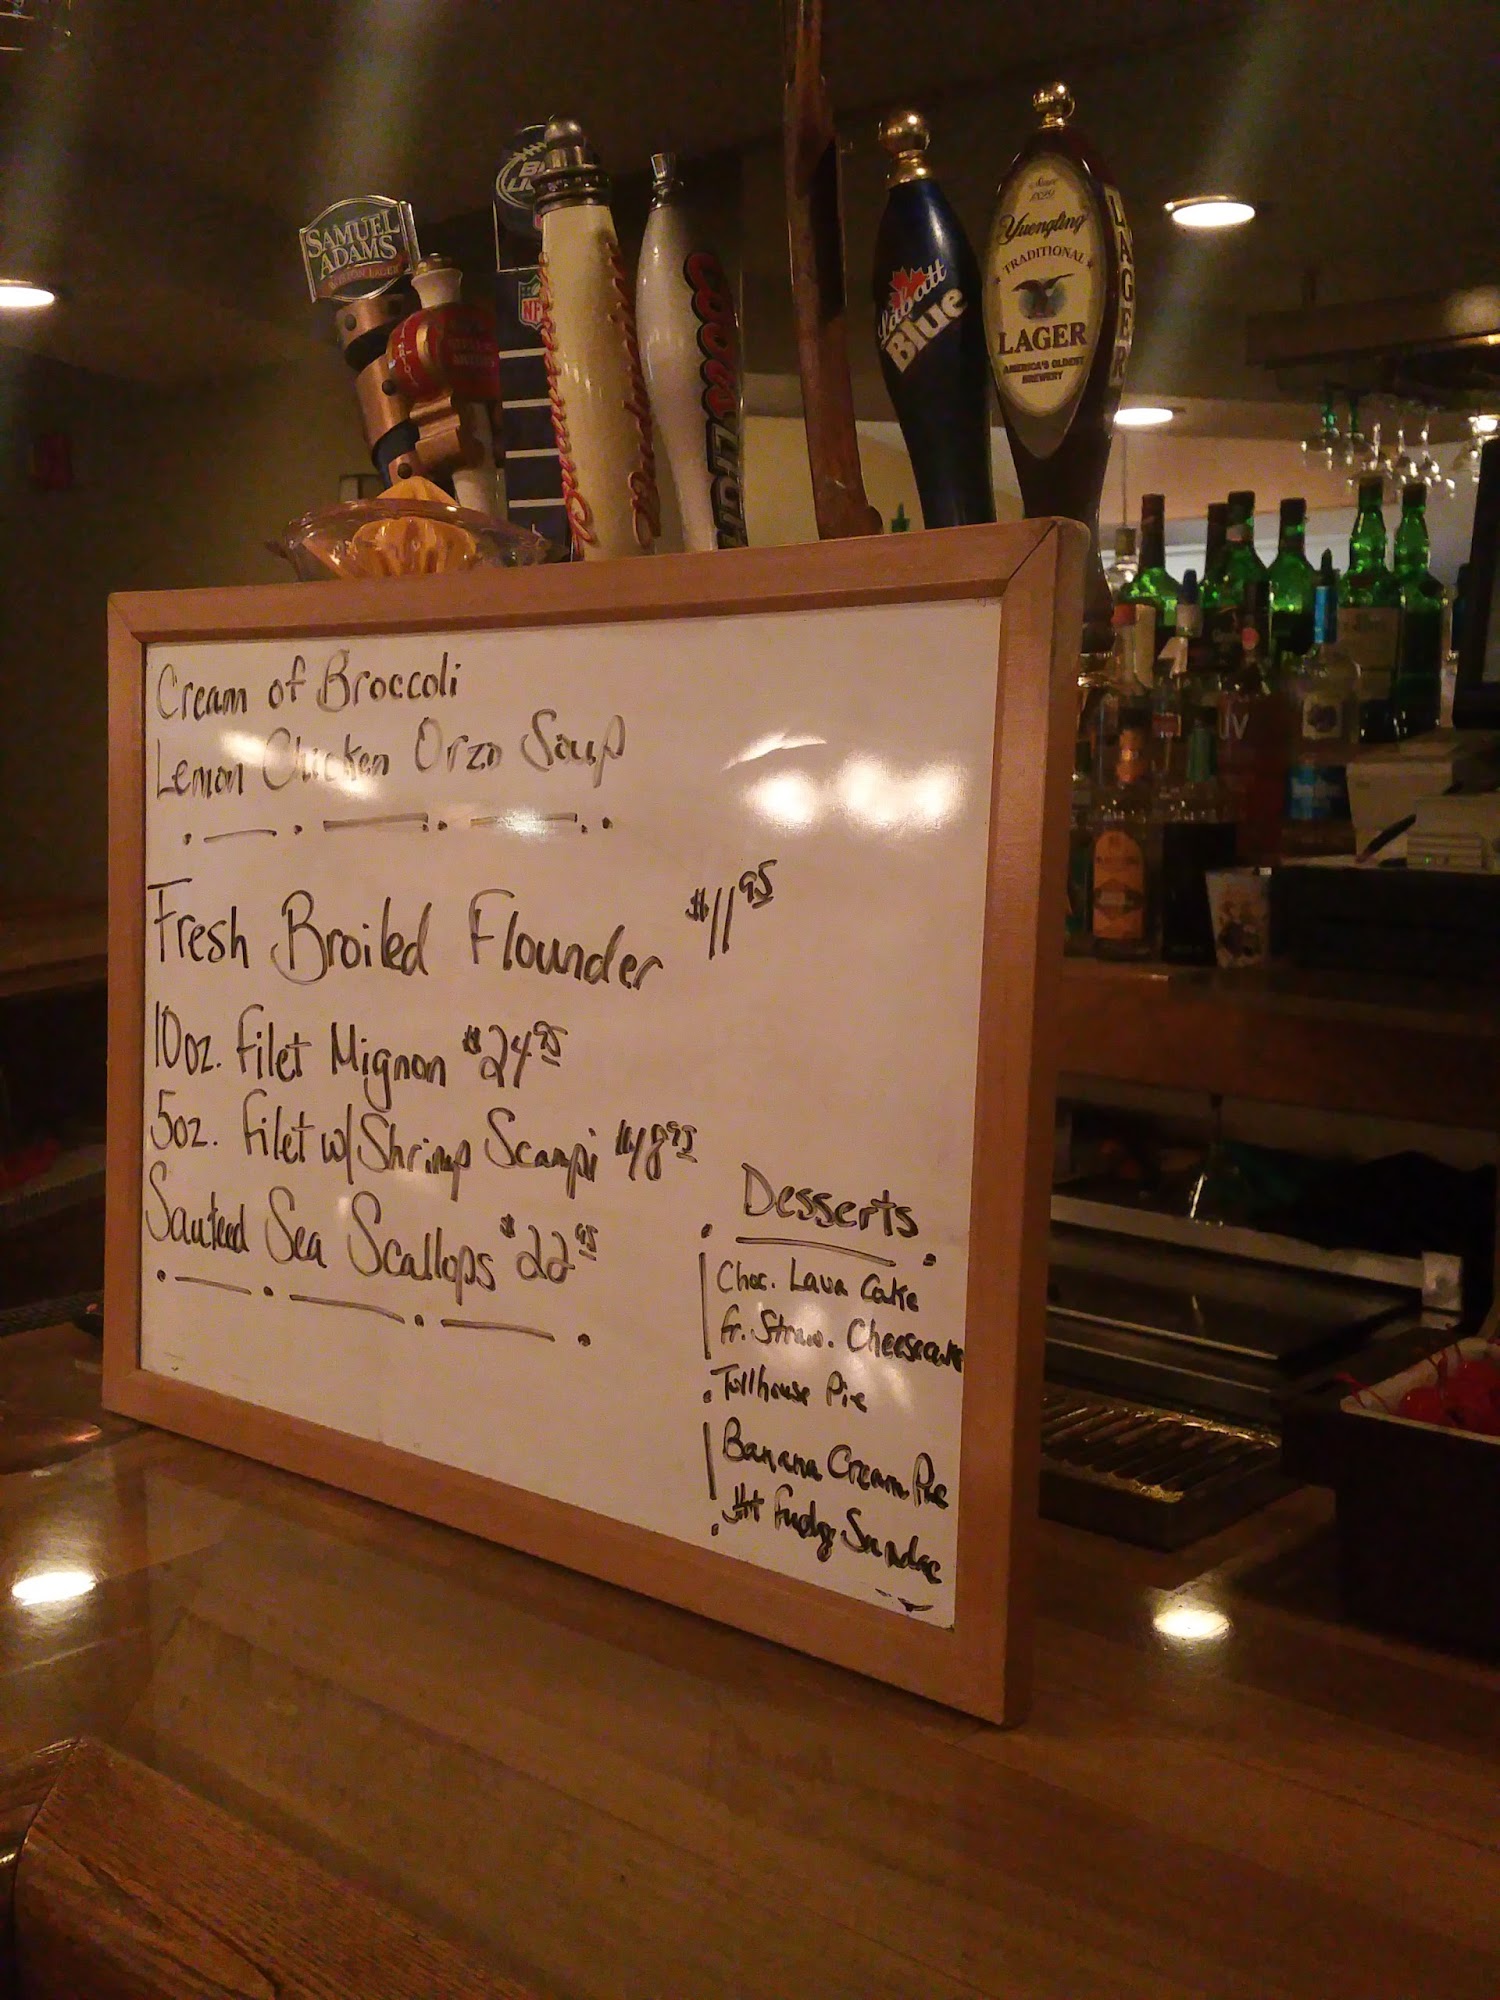 SAMUEL
ADAMS
BOSTON LAGER
BUD
LIGHT
NFL
Budweiser
Coors LIGHT
Labatt
Blue
Since
1829
Yuengling
TRADITIONAL
LAGER
AMERICA'S OLDEST
BREWERY
LAGER
UV
Cream of Broccoli
Lemon Chicken Orzo Soup
Fresh Broiled Flounder $11 95
10oz. Filet Mignon $24 95
5oz. Filet w/ Shrimp Scampi 95
Sauteed Sea Scallops $22 95
Desserts
Choc. Lava Cake
Fr. Straw. Cheesecake
Tollhouse Pie
Banana Cream Pie
Hot Fudg Sundae